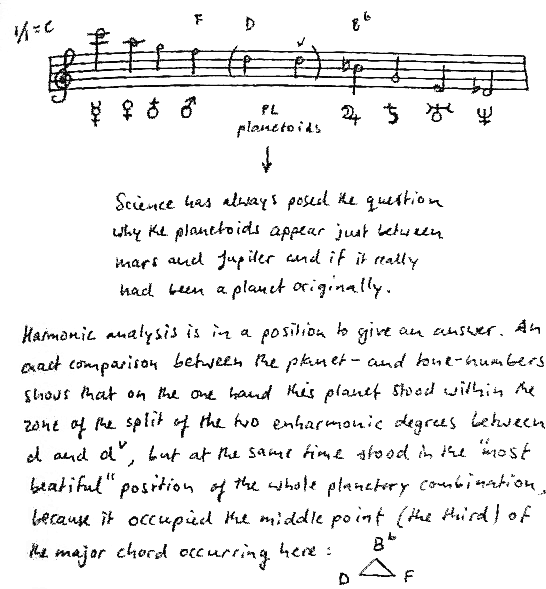 1/1=c F D Bb
☿ ♀ ♁ ♂ PL ♃ ♄ ♅ ♆
planetoids
Science has always posed the question
why the planetoids appear just between
mars and Jupiter and if it really
had been a planet originally.
Harmonic analysis is in a position to give an answer. An
exact comparison between the planet- and tone-numbers
shows that on the one hand this planet stood within the
zone of the split of the two enharmonic degrees between
d and dᵛ, but at the same time stood in the "most
beatiful" position of the whole planetary combination,
because it occupied the middle point (the third) of
the major chord occurring here:
Bb
D F